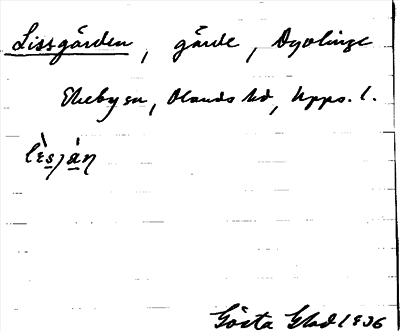 Lissgården, gärde, Dyvlinge
Ekeby sn, Olands hd, Upps. l.
lèsján
Gösta Glad 1936